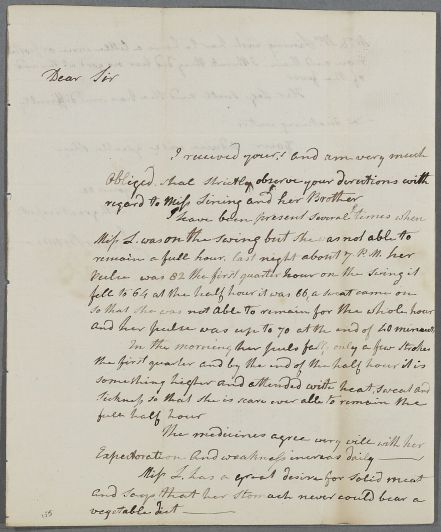 Dear Sir
I received yours and am very much
Obliged. shal strictly observe your directions with
regard to Miss Lining and her Brother
I have been present several times when
Miss L. was on the swing but she was not able to
remain a full hour, last night about 7 P.M. her
Pulse was 82 the first quarter hour on the Swing it
fell to 64 at the half hour it was 66, a sweat came on
so that she was not able to remain for the whole hour
and her pulse was up to 70 at the end of 40 minuets
In the morning her puls falls only a few strokes
the first quarter and by the end of the half hour it is
something higher and attended with heat, sweat and
Sickness so that she is scarce ever able to remain the
full half hour
The medicines agree very well with her
Expectoration and weakness increas daily
Miss L. has a great desire for solid meat
and says that her stomach never could bear a
vegetable diet
35